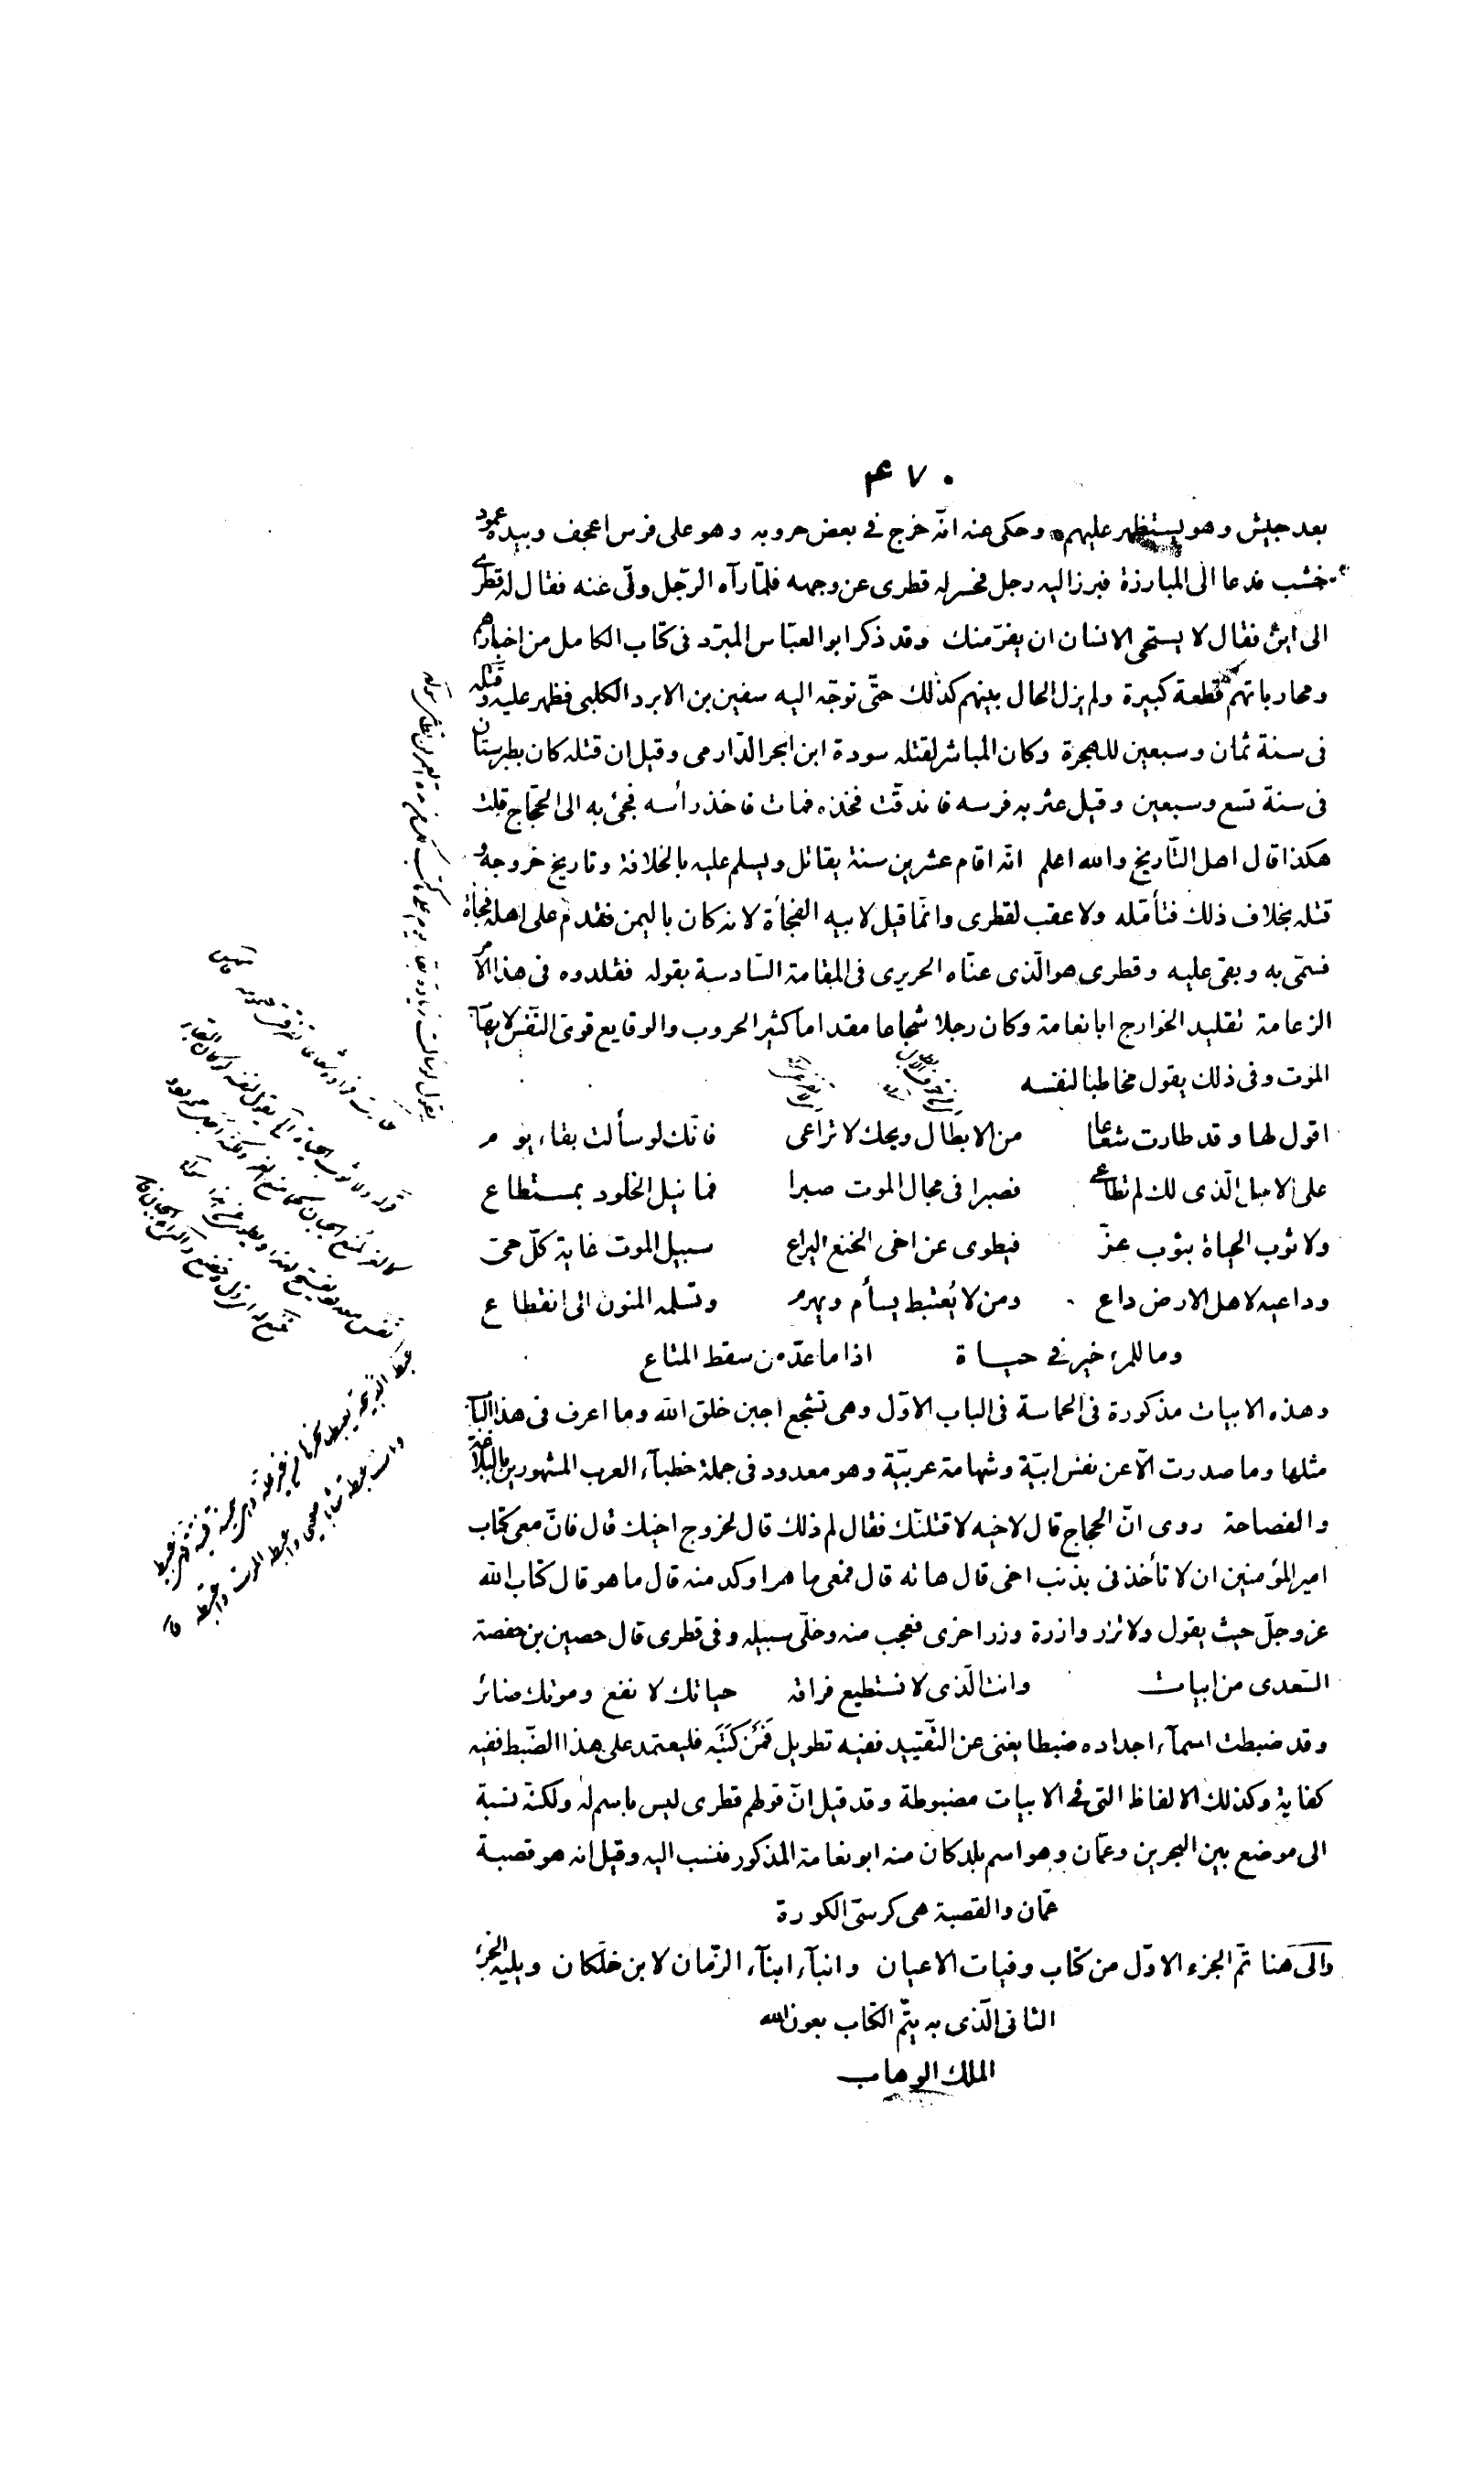 ۴۷۰
بعد جيش وهو يستظهر عليهم وحكى عنه انّه خرج فى بعض حروبه وهو على فرس اعجف وبيده عمود
خشب فدعا الى المبارزة فبرز اليه رجل فحسر له قطرى عن وجهه فلمّا رآه الرّجل ولّى عنه فقال له قطرى
الى اين فقال لا يستحى الانسان ان يفرّ منك وقد ذكر ابو العبّاس المبرّد فى كتاب الكامل من اخبارهم
ومحارباتهم قطعة كبيرة ولم يزل الحال بينهم كذلك حتّى توجّه اليه سفين بن الابرد الكلبى فظهر عليه وقتله
فى سنة ثمان وسبعين للهجرة وكان المباشر لقتله سودة ابن ابجر الدّارمى وقيل ان قتله كان بطبرستان
فى سنة تسع وسبعين وقيل عثر به فرسه فاندقّت فخذه فمات فاخذ رأسه فجئ به الى الحجّاج قلت
هكذا قال اهل التّاريخ والله اعلم انّه اقام عشرين سنة يقاتل ويسلم عليه بالخلافة وتاريخ خروجه و
قتله بخلاف ذلك فتأمّله ولا عقب لقطرى وانّما قيل لابيه الفجأة لانه كان باليمن فقدم على اهله فجأة
فسمّى به وبقى عليه وقطرى هو الّذى عنّاه الحريرى فى المقامة السّادسة بقوله فقلدوه فى هذا الامر
الزعامة تقليد الخوارج ابا نعامة وكان رجلا شجاعا مقداما كثير الحروب والوقايع قوىّ النّفس لا يهاب
الموت وفى ذلك يقول مخاطبا لنفسه
اقول لها وقد طارت شعاعا من الابطال ويحك لا تراعى فانّك لو سألت بقاء يوم
على الاجل الّذى لك لم تطاعى فصبرا فى مجال الموت صبرا فما نيل الخلود بمستطاع
ولا ثوب الحياة بثوب عزّ فيطوى عن اخى الخنع اليراع سبيل الموت غاية كلّ حىّ
وداعيه لاهل الارض داع ومن لا يُعتبط يسأم ويهرم وتسلمه المنون الى انقطاع
وما للمرء خير فى حياة اذا ما عدّ من سقط المتاع
وهذه الابيات مذكورة فى الحماسة فى الباب الاوّل وهى تشجع اجبن خلق الله وما اعرف فى هذا الباب
مثلها وما صدرت الّا عن نفس ابيّة وشهامة عربيّة وهو معدود فى جملة خطبآء العرب المشهورين بالبلاغة
والفصاحة روى انّ الحجاج قال لاخيه لاقتلنّك فقال لم ذلك قال لخروج اخيك قال فانّ معى كتاب
امير المؤمنين ان لا تأخذنى بذنب اخى قال هاته قال فمعى ما هو اوكد منه قال ما هو قال كتاب الله
عز وجلّ حيث يقول ولا تزر وازرة وزر اخرى فعجب منه وخلّى سبيله وفى قطرى قال حصين بن حفصة
السّعدى من ابيات وانت الّذى لا نستطيع فراقه حياتك لا نفع وموتك ضائر
وقد ضبطت اسمآء اجداده ضبطا يغنى عن التّقييد ففيه تطويل فَمَنْ كَتَبَه فليعتمد على هذا الضّبط ففيه
كفاية وكذلك الالفاظ التى فى الابيات مضبوطة وقد قيل انّ قولهم قطرى ليس باسم له ولكنّه نسبة
الى موضع بين البحرين وعمّان وهو اسم بلد كان منه ابو نعامة المذكور فنسب اليه وقيل انه هو قصبة
عمّان والقصبة هى كرسىّ الكورة
والى هنا تمّ الجزء الاوّل من كتاب وفيات الاعيان وانبآء ابنآء الزّمان لابن خلّكان ويليه الجزء
الثانى الّذى به يتمّ الكتاب بعون الله
الملك الوهاب